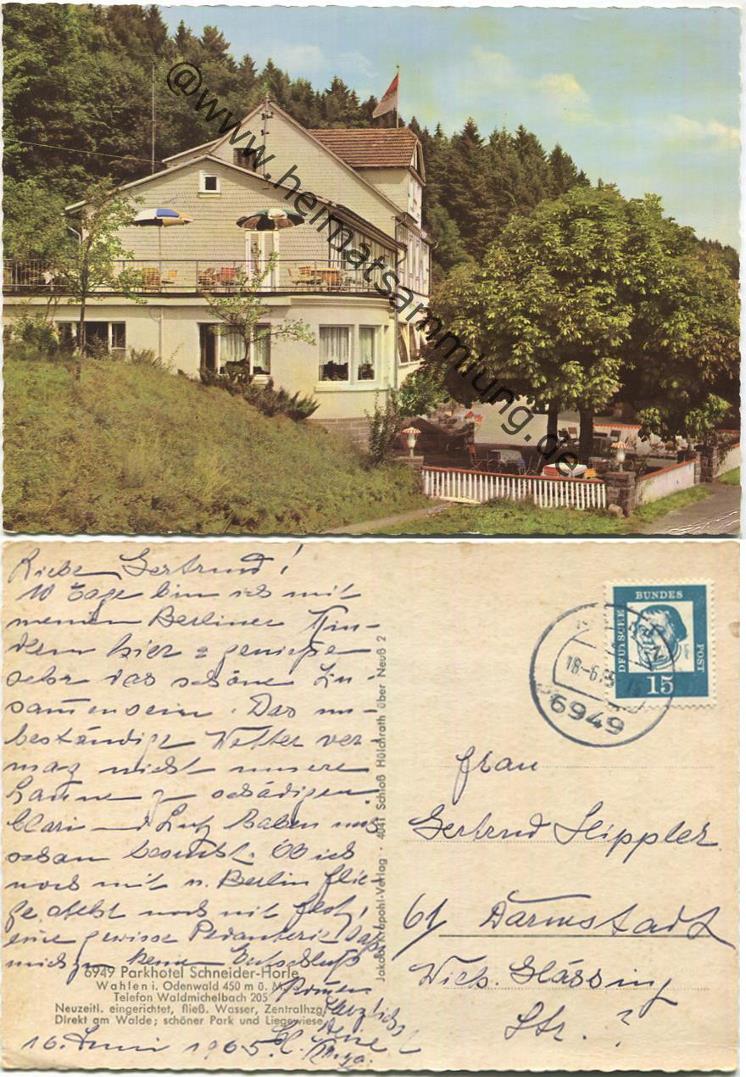 @www.heimatsammlung.de
Liebe Gertrud!
10 Tage bin ich mit
meinen Berliner Kin-
dern hier u genieße
sehr das schöne Zu-
sammensein. Das un-
beständige Wetter ver-
mag nicht unsere
Laune zu schädigen
und Lutz haben uns
schon besucht. Ob ich
noch mit n. Berlin flie-
ge, steht noch nicht fest,
eine gewisse Pedanterie läßt
mich zu keinem Entschluß
kommen
Herzlichst
Deine
16. Juni 1965.
6949 Parkhotel Schneider-Horle
Wahlen i. Odenwald 450 m ü. M.
Telefon Waldmichelbach 205
Neuzeitl. eingerichtet, fließ. Wasser, Zentralhzg.
Direkt am Walde; schöner Park und Liegewiese
Jakob Krapohl-Verlag · 4041 Schloß Hülchrath über Neuß 2
DEUTSCHE BUNDES POST
15
18-6.65
6949
Frau
Gertrud
61 Darmstadt
Wilh. Glässing
Str. ?